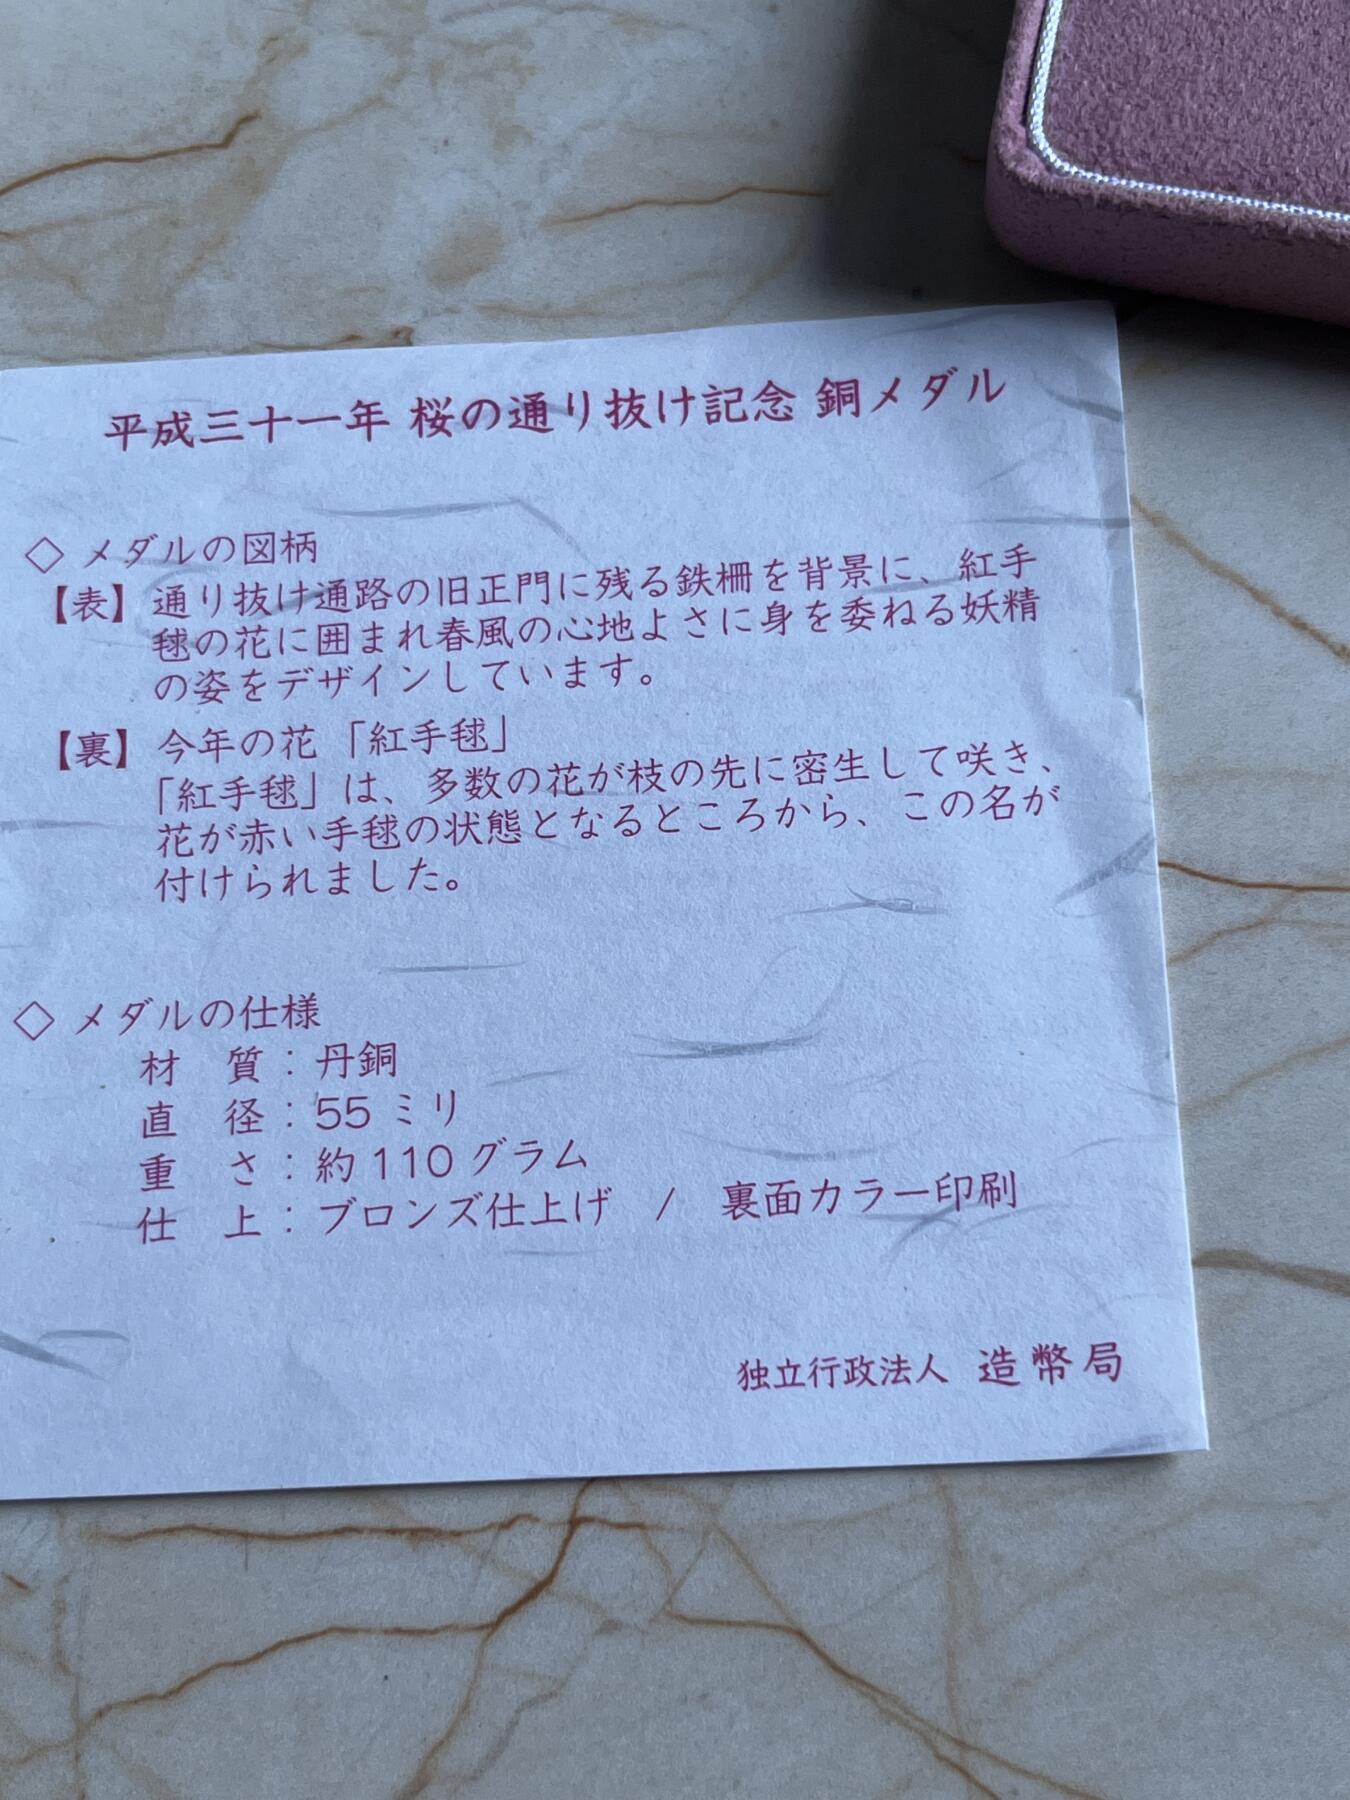 平成三十一年 桜の通り抜け記念 銅メダル
◇ メダルの図柄
【表】 通り抜け通路の旧正門に残る鉄柵を背景に、紅手
毬の花に囲まれ春風の心地よさに身を委ねる妖精
の姿をデザインしています。
【裏】 今年の花 「紅手毬」
「紅手毬」は、多数の花が枝の先に密生して咲き、
花が赤い手毬の状態となるところから、この名が
付けられました。
◇ メダルの仕様
材 質：丹銅
直 径：55 ミリ
重 さ：約 110 グラム
仕 上：ブロンズ仕上げ / 裏面カラー印刷
独立行政法人 造幣局